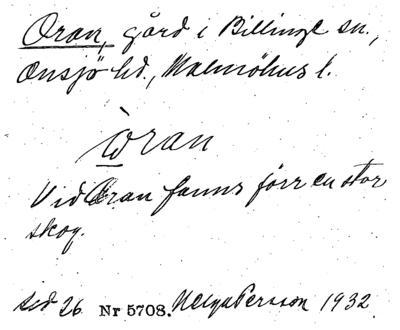 Oran, gård i Billinge sn.,
Onsjö hd., Malmöhus l.
òran
Vid Oran fanns förr en stor
skog.
sid 26. Nr 5708. Helga Persson 1932